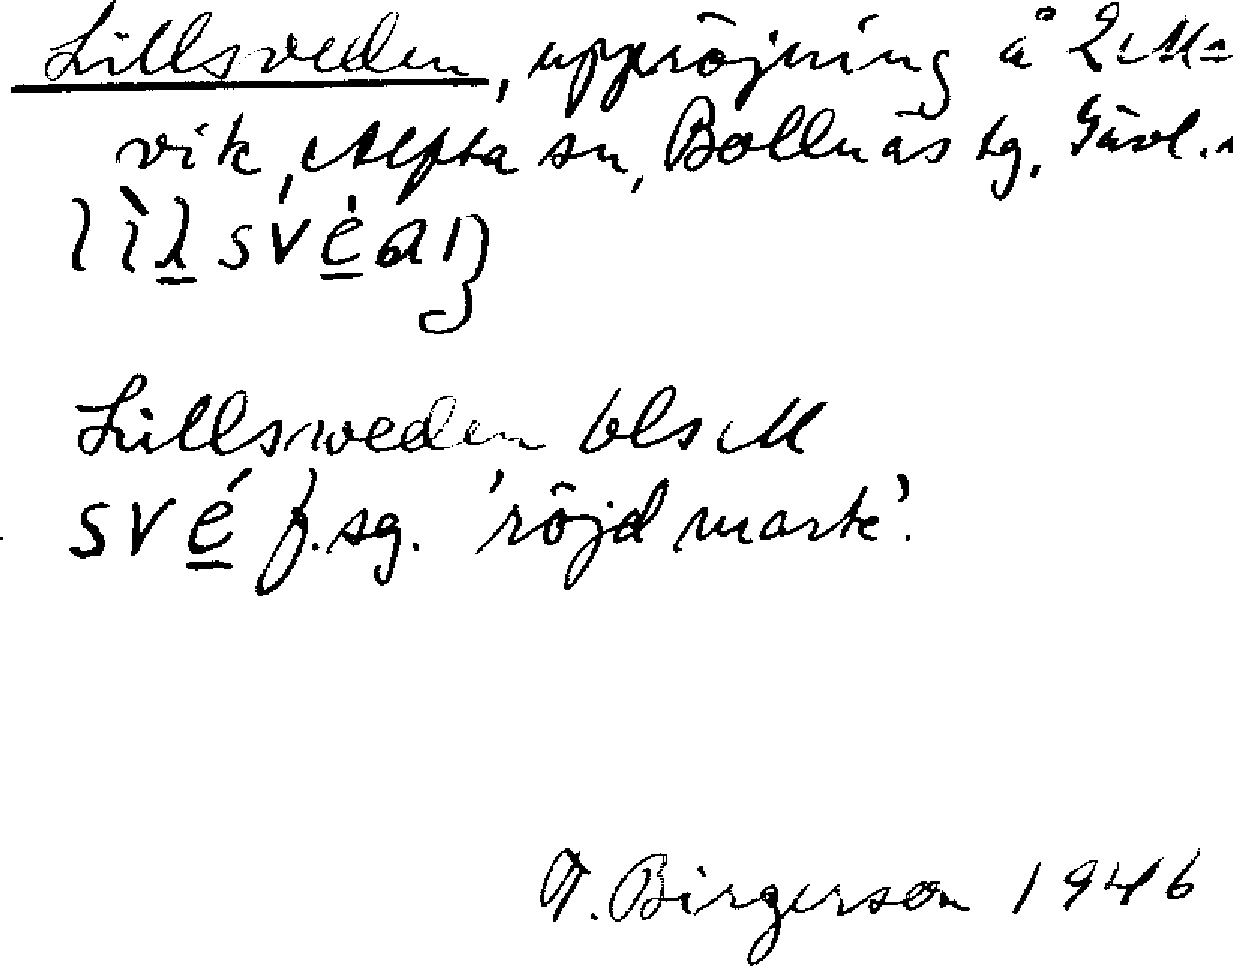 Lillsveden, uppröjning å 2 M=
vik, Alfta sn, Bollnäs tg, Gävl.
Lillsveden bls M
své f.sg. 'röjd mark'.
T. Birgerson 1946